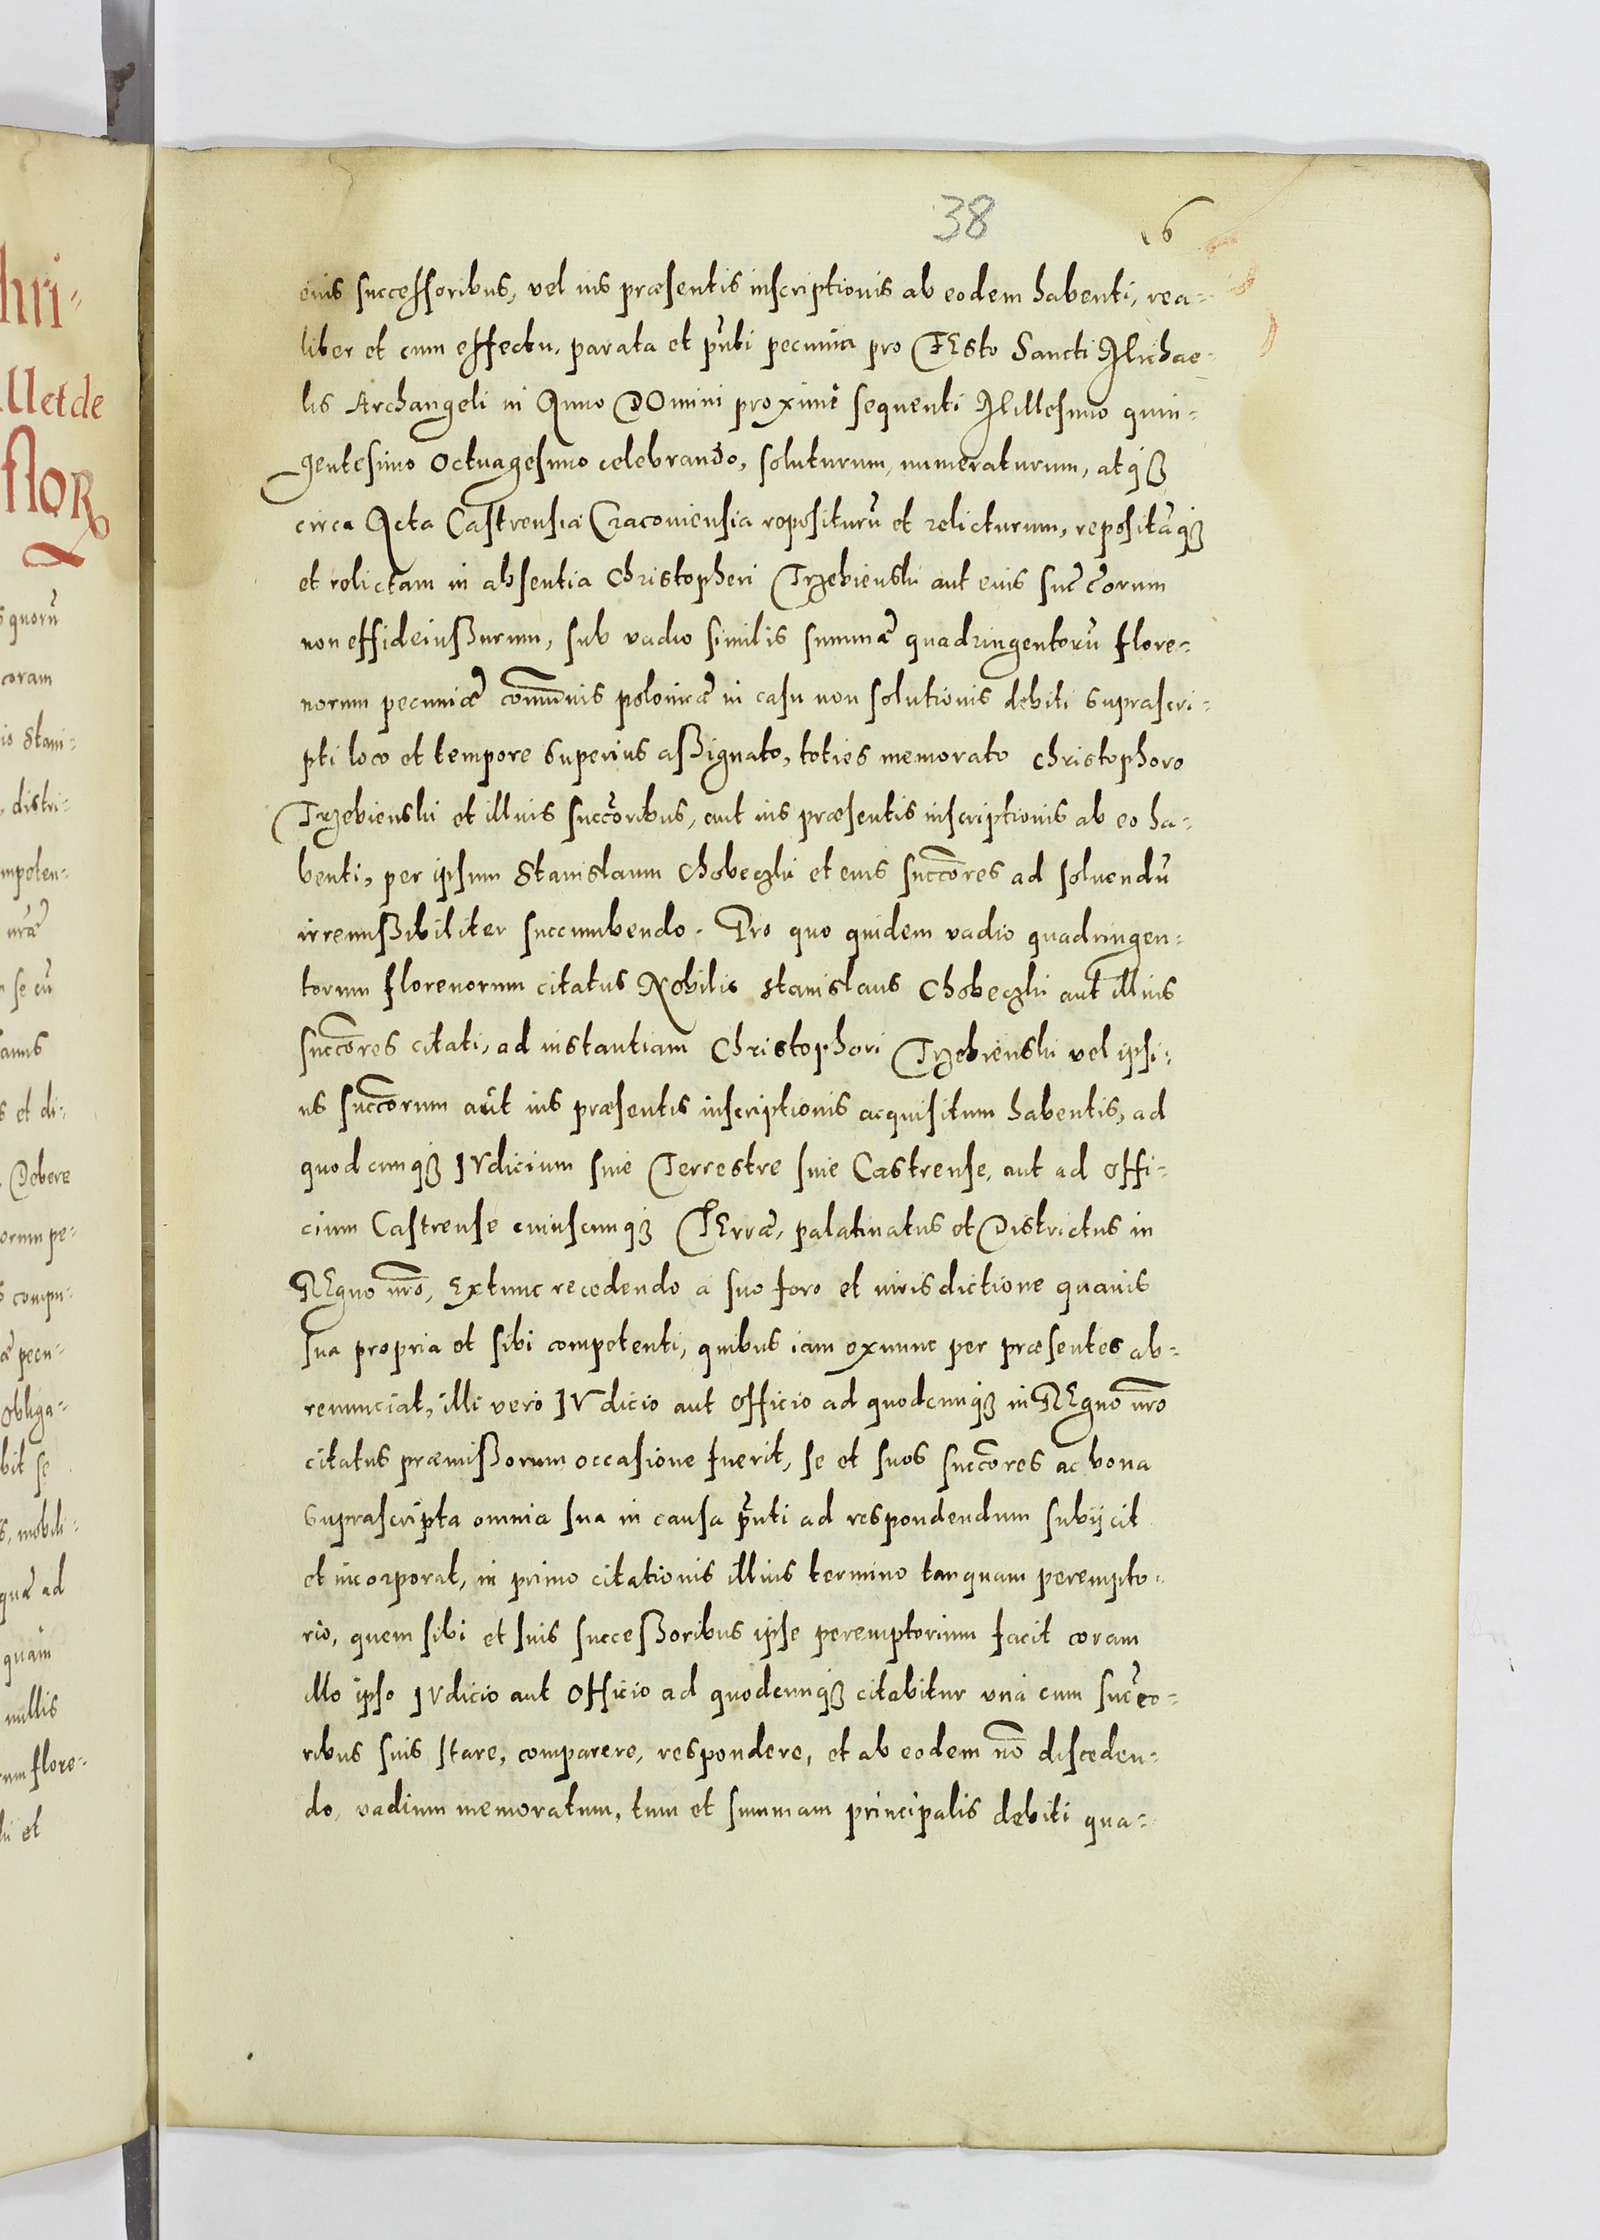 38
16
eius successoribus, vel ius præsentis inscriptionis ab eodem habenti, rea-
liter et cum effectu, parata et pñti pecunia pro FEsto Sancti Micha-
lis Archangeli in Anno DOmini proximè sequenti Millesimo quin-
gentesimo Octuagesimo celebrando, soluturum, numeraturum, atq₃
circa Acta Castrensia Cracouiensia repositurũ et relicturum, repositãq₃
et relictam in absentia Christopheri Trzebienski aut eius succorum
non effideiußurum, sub vadio similis summæ quadringentorũ flore-
norum pecuniæ com̃unis polonicæ in casu non solutionis debiti suprascri-
pti loco et tempore superius aßignato, toties memorato Christophoro
Trzebienski et illius succoribus, aut ius præsentis inscriptionis ab eo ha-
benti, per ipsum Stanislaum Chobeczki et eius succores ad soluendũ
irremißibiliter succumbendo. Pro quo quidem vadio quadringen-
torum florenorum citatus Nobilis Stanislaus Chobeczki aut illius
succores citati, ad instantiam Christophori Trzebienski vel ipsi-
us succorum aut ius præsentis inscriptionis acquisitum habentis, ad
quodcunq₃ IVdicium siue Terrestre siue Castrense, aut ad Offi-
cium Castrense cuiuscunq₃ TErræ, palatinatus et Districtus in
REgno nr̃o, Extunc recedendo a suo foro et iurisdictione quauis
sua propria et sibi competenti, quibus iam exnunc per præsentes ab-
renunciat, illi vero IVdicio aut Officio ad quodcunq₃ in REgno nr̃o
citatus præmißorum occasione fuerit, se et suos succores ac bona
suprascripta omnia sua in causa pñti ad respondendum subijcit
et incorporat, in primo citationis illius termino tanquam perempto-
rio, quem sibi et suis succeßoribus ipse peremptorium facit coram
illo ipso IVdicio aut Officio ad quodcunq₃ citabitur vna cum succo-
ribus suis stare, comparere, respondere, et ab eodem nõ disceden-
do, vadium memoratum, tum et summam principalis debiti qua-